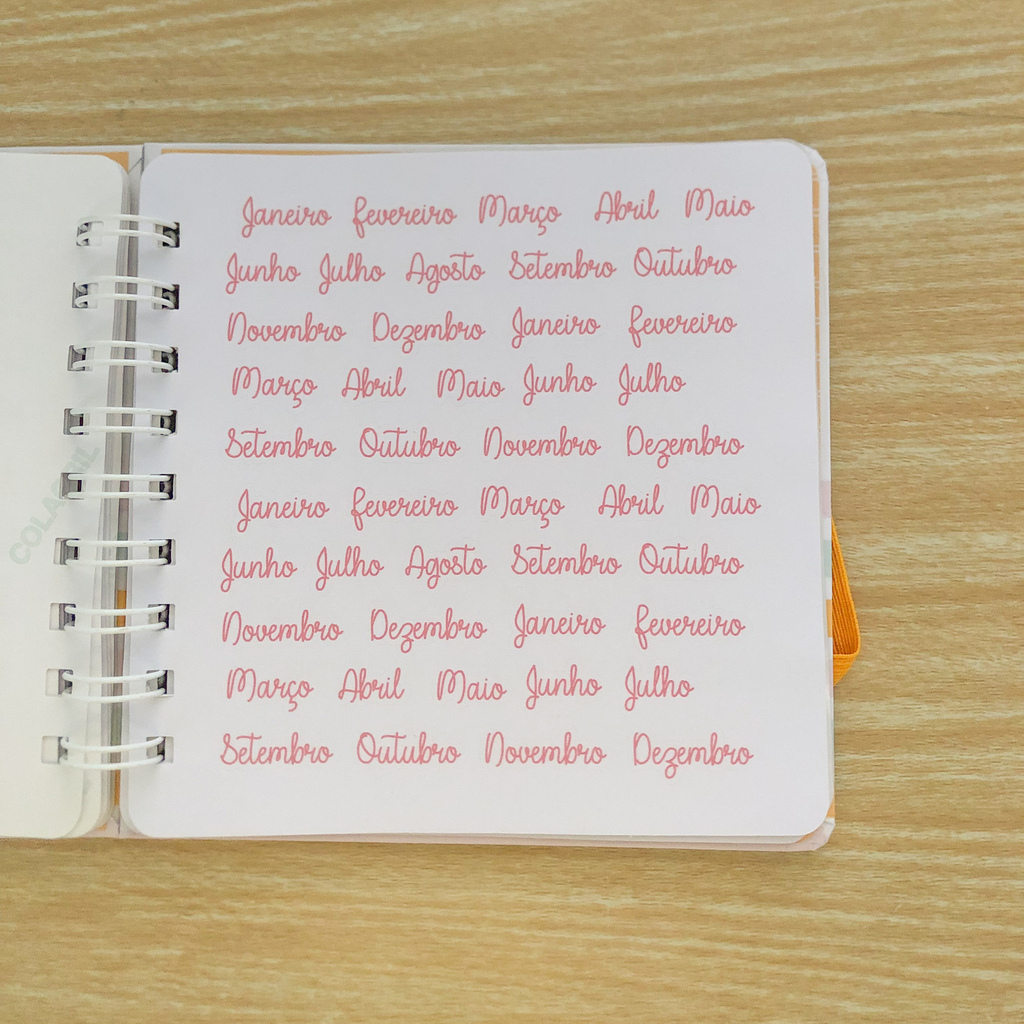 Janeiro fevereiro Março Abril Maio
Junho Julho Agosto Setembro Outubro
Novembro Dezembro Janeiro fevereiro
Março Abril Maio Junho Julho
Setembro Outubro Novembro Dezembro
Janeiro fevereiro Março Abril Maio
Junho Julho Agosto Setembro Outubro
Novembro Dezembro Janeiro fevereiro
Março Abril Maio Junho Julho
Setembro Outubro Novembro Dezembro